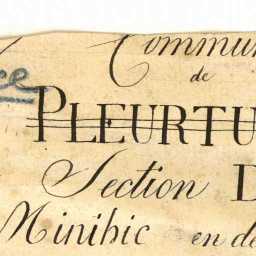 Commun
de
PLEURTU
Section D
Minihic en de